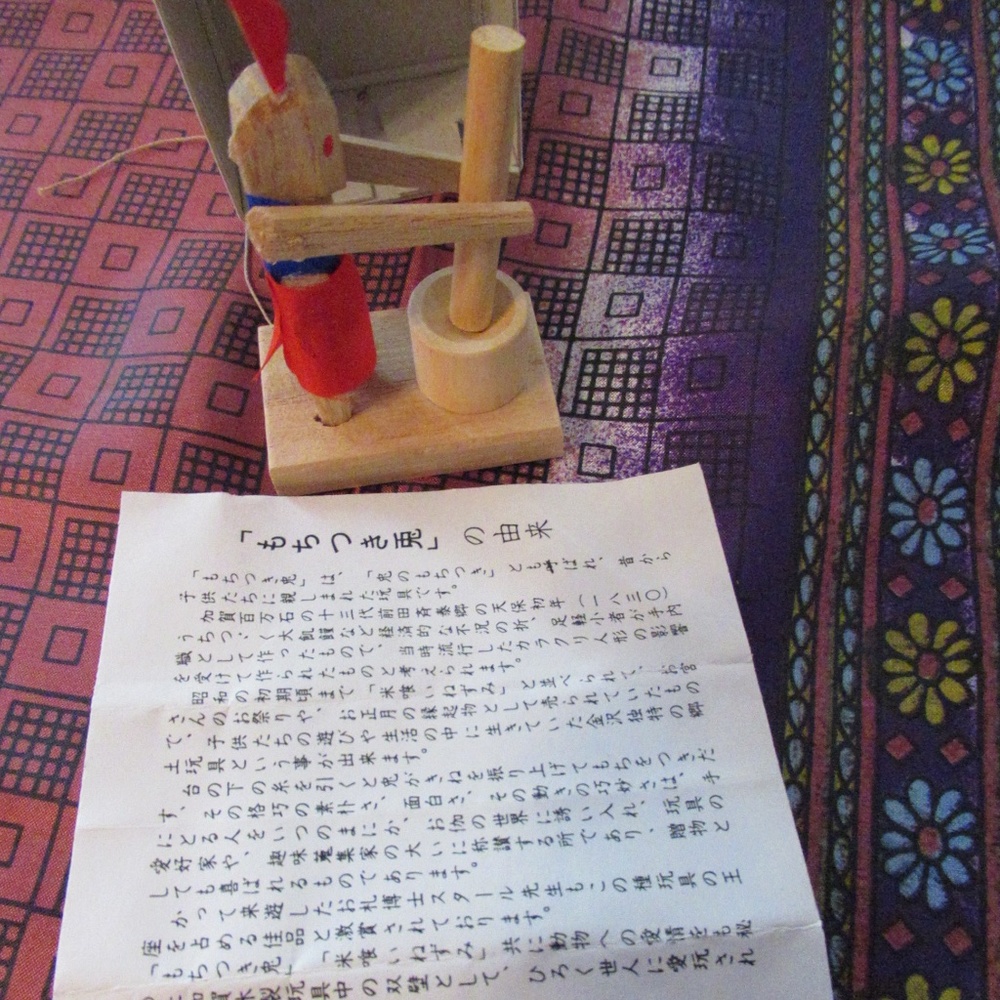 「もちつき兎」の由来
「もちつき兎」は、「兎のもちつき」とも呼ばれ、昔から
子供たちに親しまれた玩具です。
加賀百万石の十三代前田斉泰卿の天保初年(一八三〇)
うちつゞく大飢饉など経済的な不況の折、足軽小者が手内
職として作ったもので、当時流行したカラクリ人形の影響
を受けて作られたものと考えられます。
昭和の初期頃まで「米喰いねずみ」と並べられて、お宮
さんのお祭りや、お正月の縁起物として売られていたもの
で、子供たちの遊びや生活の中に生きていた金沢独特の郷
土玩具という事が出来ます。
台の下の糸を引くと兎がきねを振り上げてもちをつきだ
す、その格巧の素朴さ、面白さ、その動きの巧妙さは、手
にとる人をいつのまにか、お伽の世界に誘い入れ、玩具の
愛好家や、趣味蒐集家の大いに称讃する所であり、贈物と
しても喜ばれるものであります。
かつて来遊したお札博士スタール先生もこの種玩具の王
座を占める佳品と激賞されております。
「もちつき兎」「米喰いねずみ」共に動物への愛情をも秘
木製玩具中の双璧として、ひろく世人に愛玩され